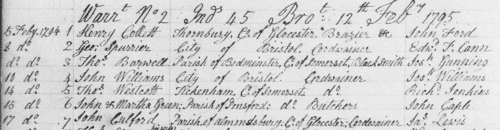 Warrt. No 2 Ind 45 Brot. 12th Feby 1795
5 Feby. 1794 1 Henry Collett Thornbury, C. of Glocester Brazier & John Ford
8 do 2 Geo: Spurrier City of Bristol Cordwainer Edwd. J. Cann
do do 3 Thos. Barwell Parish of Bedminster, C. of Somerset, Black Smith Jos: Gunning
10 do 4 John Williams City of Bristol Cordwainer Jos: Williams
14 do 5 Thos. Westcott Tickenham, C. of Somerset, do Richd. Jenkins
16 do 6 John & Martha Green; Parish of do Butchers John Caple
17 do 7 John Culford Parish of Almondsbury, C. of Glocester; Cordwainer Jas. Lewis